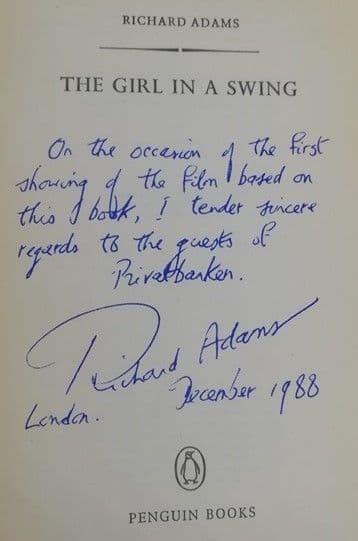 RICHARD ADAMS
THE GIRL IN A SWING
On the occasion of the first
showing of the film based on
this book, I tender sincere
regards to the guests of
Privatbanken.
Richard Adams
London. December 1988
PENGUIN BOOKS